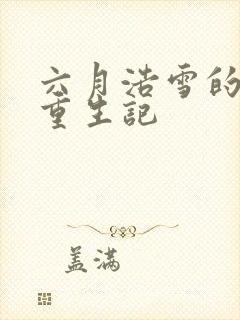 六月浩雪的
重生記
盖满